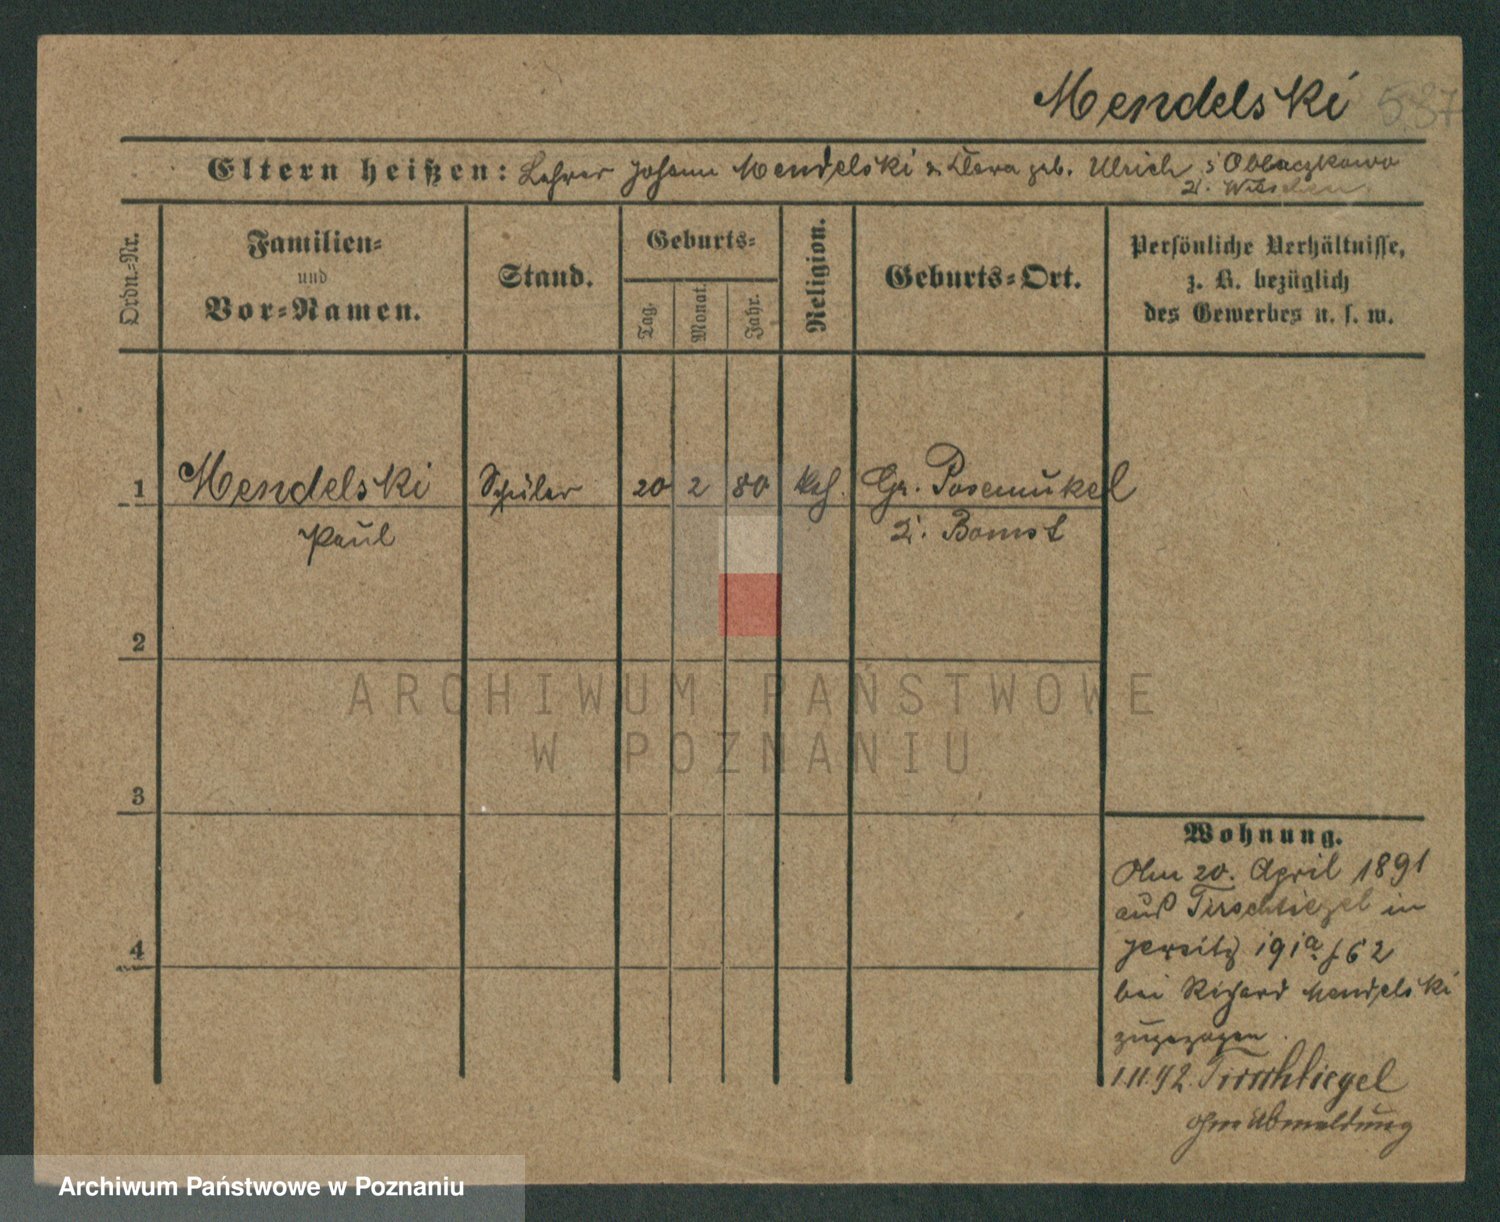 Mendelski 587
Eltern heißen: Lehrer Johann Mendelski & Clara geb. Ulrich, Oblaczkowo
Ordn.-Nr.
Familien-
und
Vor-Namen.
Stand.
Geburts-
Tag.
Monat.
Jahr.
Religion.
Geburts-Ort.
Persönliche Verhältnisse,
z. B. bezüglich
des Gewerbes u. s. w.
1 Mendelski Schüler 20 2 80 kath. Gr. Posemukel
Paul Bomst
2
ARCHIWUM PAŃSTWOWE
W POZNANIU
3
4
Wohnung.
Am 20. April 1891
aus Tirschtiegel in
Jersitz 191a
bei Richard Mendelski
zugezogen.
1.11.92. Tirschtiegel
ohne Abmeldung
Archiwum Państwowe w Poznaniu